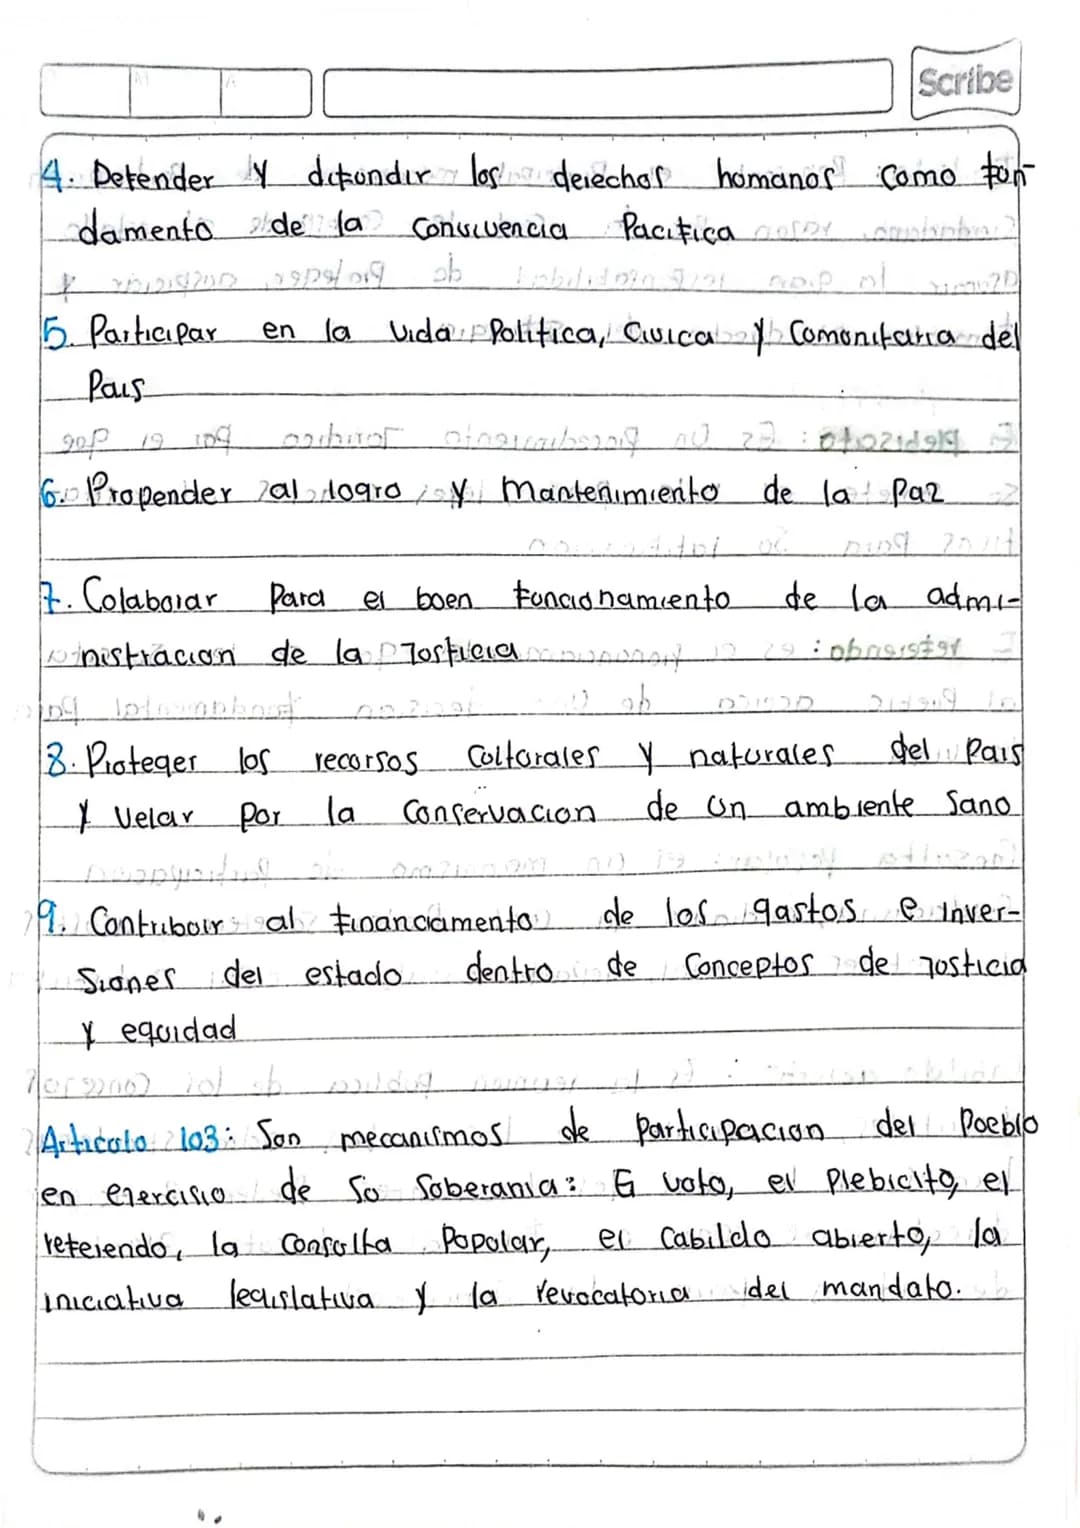 Scribe
4. Defender y difondir los derechos homanos como fon-
damento de la convivencia Pacifica
5. Participar en la vida Politica, Civica y Comonitaria del
Pais
6. Propender al logro y mantenimiento de la Paz
7. Colaborar Para el boen foncionamiento de la admi-
nistracion de la Josticia
8. Proteger los recorsos Coltorales y natorales del Pais
y velar por la conservacion de on ambiente sano
9. Contriboir al financiamento de los gastos e inver-
siones del estado dentro de conceptos de josticia
y equidad
Articolo 103: Son mecanismos de Participacion del Poeblo
en ejercisio de so soberania: El voto, el Plebicito, el
referendo, la consolta Popolar, el cabildo abierto, la
iniciativa legislativa y la revocatoria del mandato.